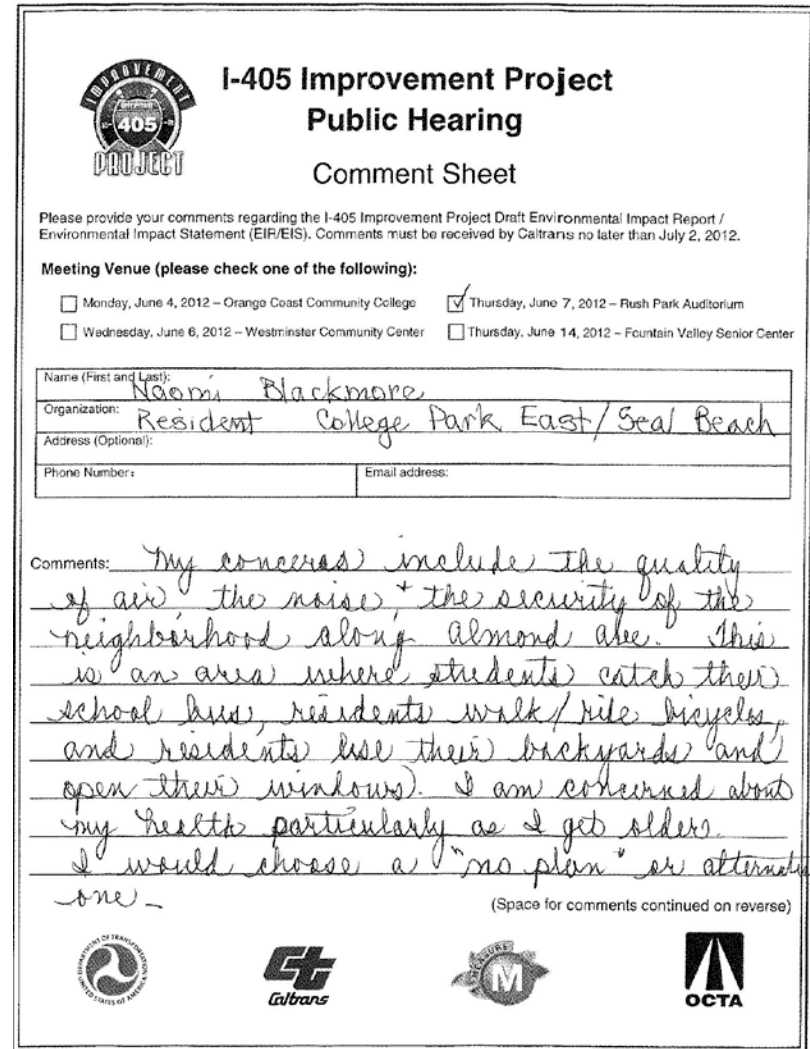 IMPROVEMENT
405
PROJECT
I-405 Improvement Project
Public Hearing
Comment Sheet
Please provide your comments regarding the I-405 Improvement Project Draft Environmental Impact Report /
Environmental Impact Statement (EIR/EIS). Comments must be received by Caltrans no later than July 2, 2012.
Meeting Venue (please check one of the following):
Monday, June 4, 2012 – Orange Coast Community College
Thursday, June 7, 2012 – Rush Park Auditorium
Wednesday, June 6, 2012 – Westminster Community Center
Thursday, June 14, 2012 – Fountain Valley Senior Center
Name (First and Last): Naomi Blackmore
Organization: Resident College Park East/Seal Beach
Address (Optional):
Phone Number:
Email address:
Comments: My concerns include the quality
of air the noise + the security of the
neighborhood along Almond Ave. This
is an area where students catch their
school bus, residents walk/ride bicycles,
and residents use their backyards and
open their windows. I am concerned about
my health particularly as I get older.
I would choose a "no plan" or alternate
one-
(Space for comments continued on reverse)
DEPARTMENT OF TRANSPORTATION
UNITED STATES OF AMERICA
Ct
Caltrans
MEASURE
M
OCTA